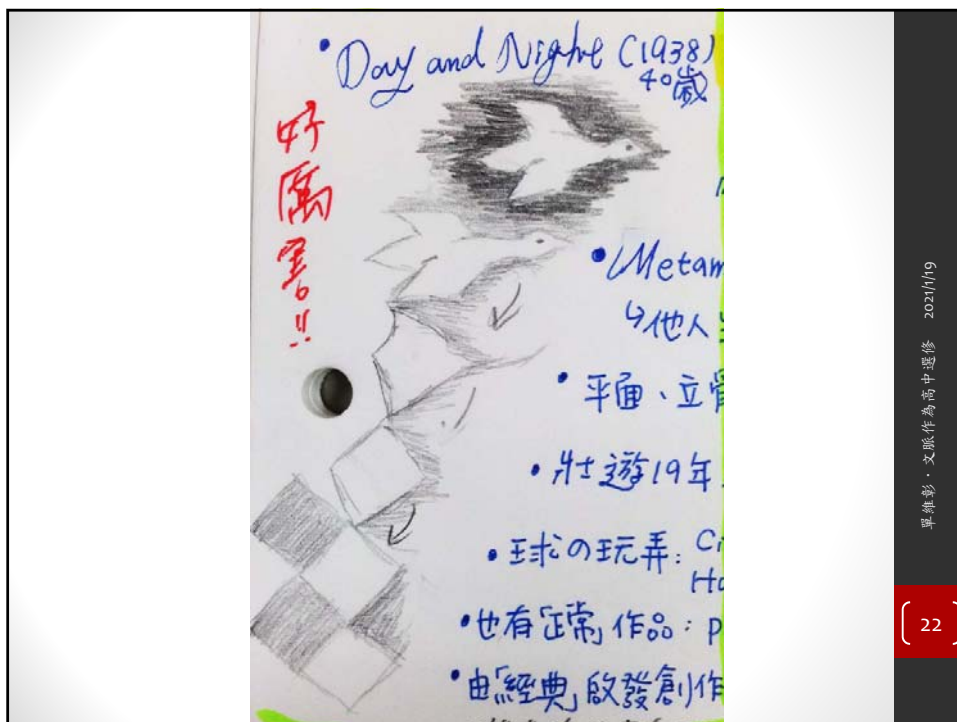 • Day and Night (1938)
40歲
好厲害!!
• Metam
↳他人
• 平面、立
• 壯遊19年
• 球の玩弄: Ci
Ho
• 也有「正常」作品: P
• 由「經典」啟發創作
單維彰・文脈作為高中選修 2021/1/19
22